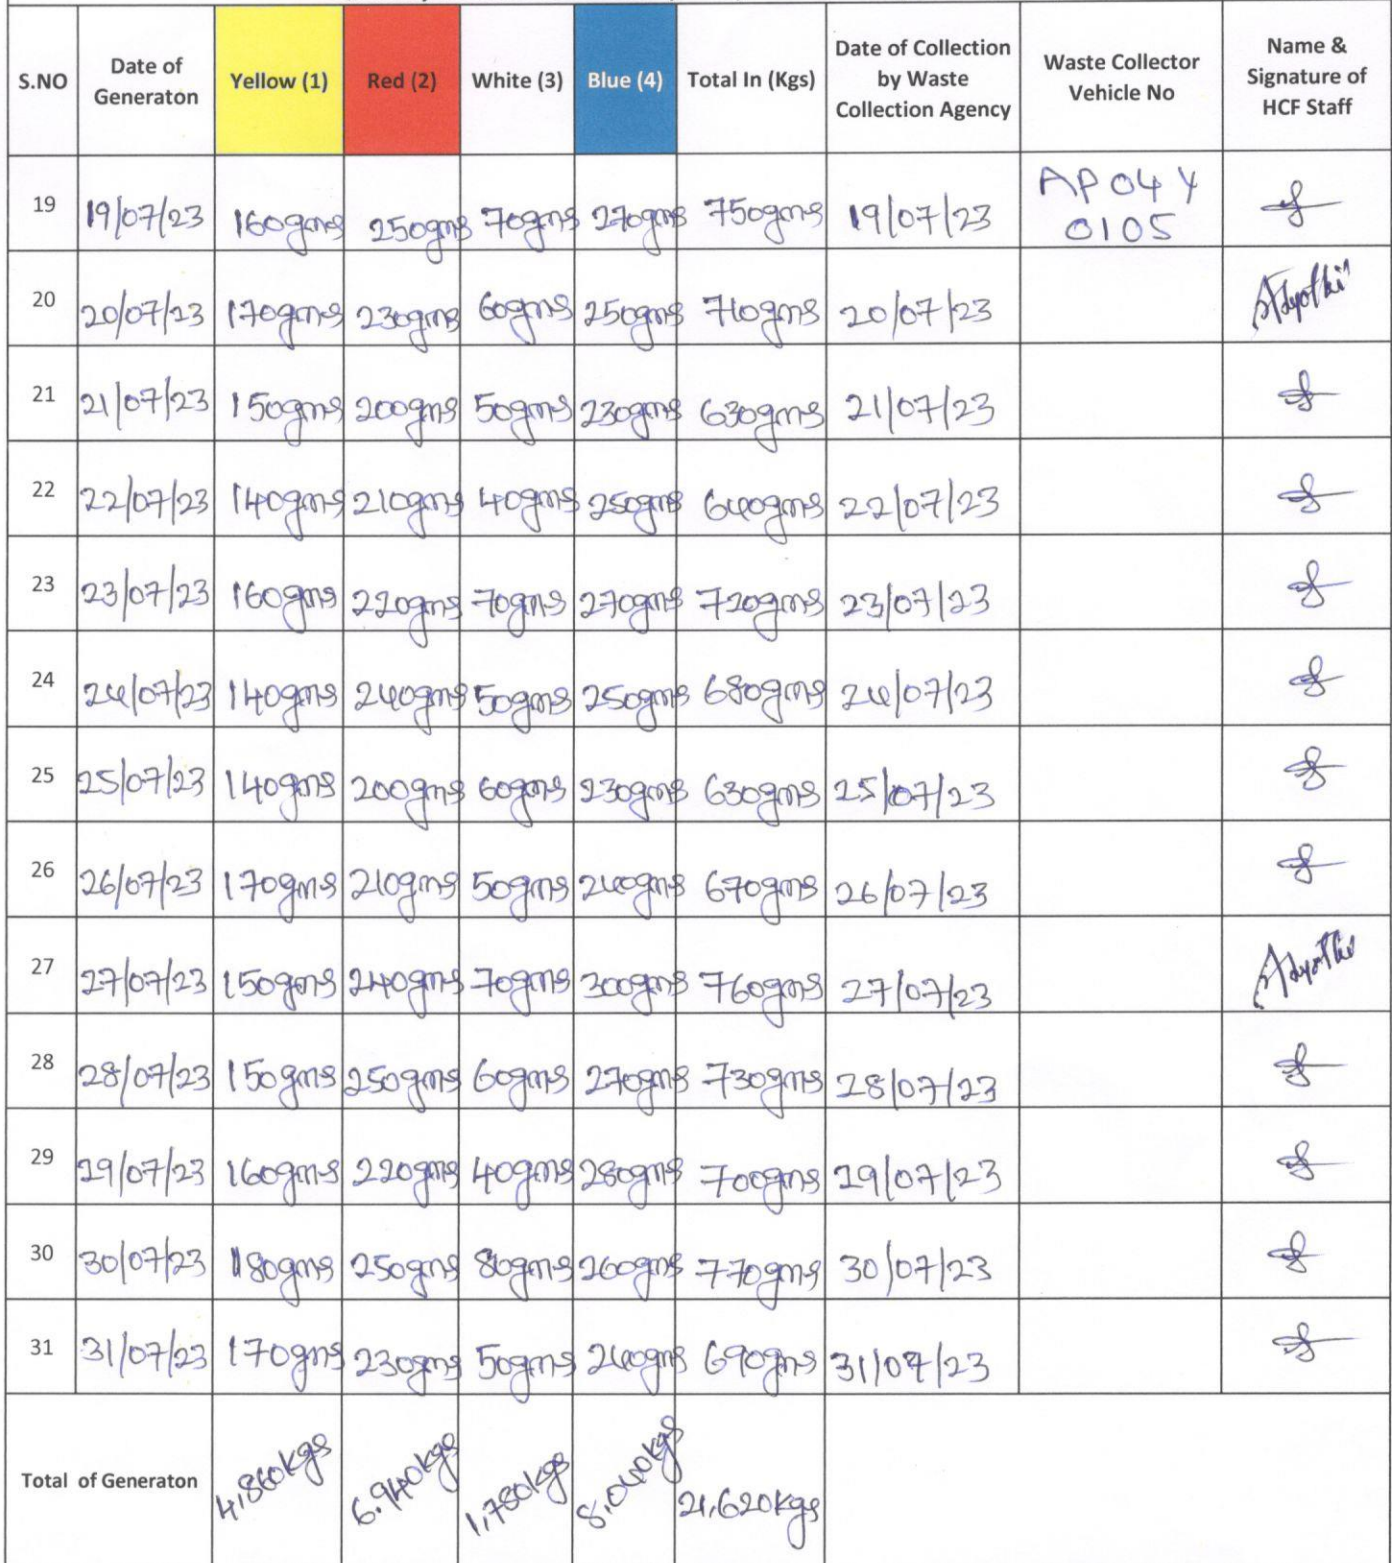 S.NO Date of Generaton Yellow (1) Red (2) White (3) Blue (4) Total In (Kgs) Date of Collection by Waste Collection Agency Waste Collector Vehicle No Name & Signature of HCF Staff
19 19/07/23 160gms 250gms 70gms 270gms 750gms 19/07/23 AP 04 Y 0105
20 20/07/23 170gms 230gms 60gms 250gms 710gms 20/07/23
21 21/07/23 150gms 200gms 50gms 230gms 630gms 21/07/23
22 22/07/23 140gms 210gms 40gms 250gms 640gms 22/07/23
23 23/07/23 160gms 220gms 70gms 270gms 720gms 23/07/23
24 24/07/23 140gms 240gms 50gms 250gms 680gms 24/07/23
25 25/07/23 140gms 200gms 60gms 230gms 630gms 25/07/23
26 26/07/23 170gms 210gms 50gms 240gms 670gms 26/07/23
27 27/07/23 150gms 240gms 70gms 300gms 760gms 27/07/23
28 28/07/23 150gms 250gms 60gms 270gms 730gms 28/07/23
29 29/07/23 160gms 220gms 40gms 280gms 700gms 29/07/23
30 30/07/23 180gms 250gms 80gms 260gms 770gms 30/07/23
31 31/07/23 170gms 230gms 50gms 240gms 690gms 31/07/23
Total of Generaton 4.860kgs 6.940kgs 1.780kgs 8.040kgs 21.620kgs